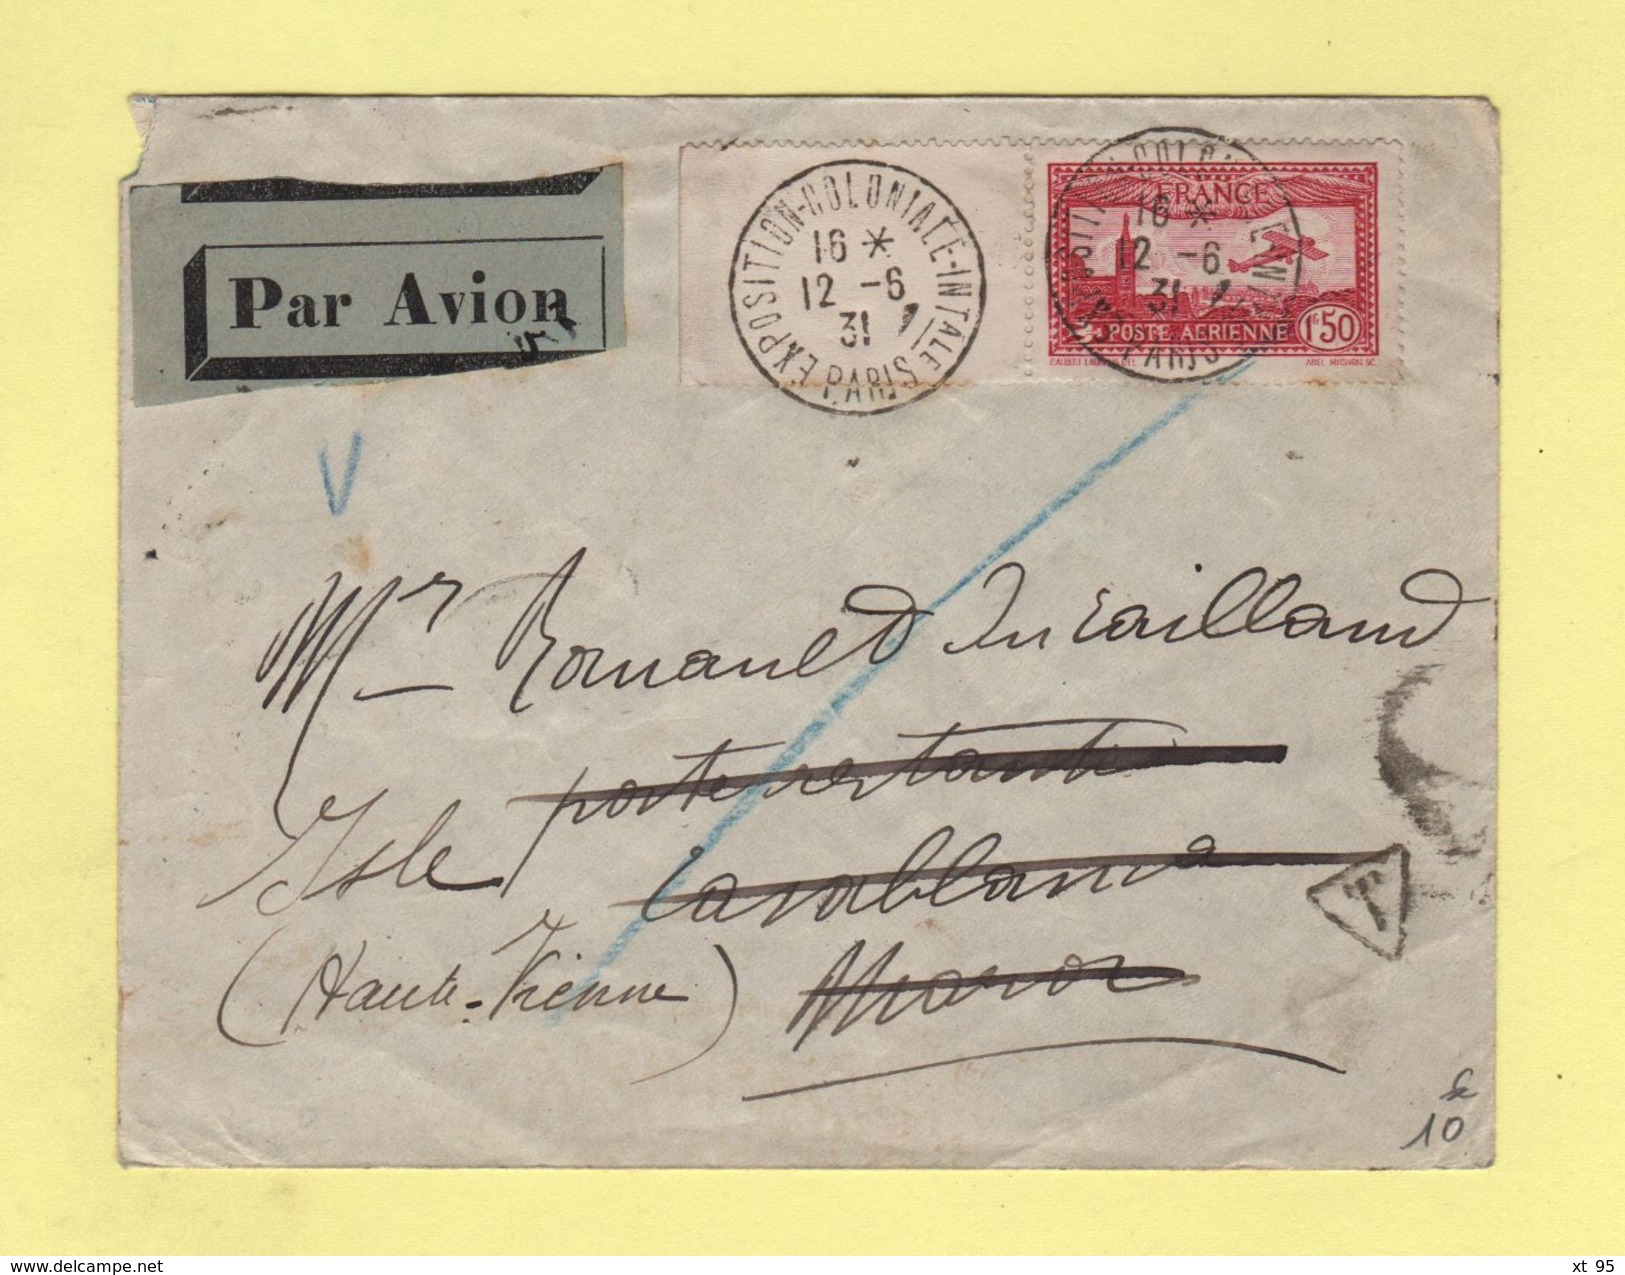 Par Avion
EXPOSITION-COLONIALE-INTALE
16 *
12 -6
31
PARIS
FRANCE
16 *
12 -6
31
POSTE AERIENNE 1F50
ABEL MICHON SC.
V
Mr Romanet du Caillaud
poste restante
Isle
Casablanca
(Haute-Vienne)
Maroc
T
10
xt 95